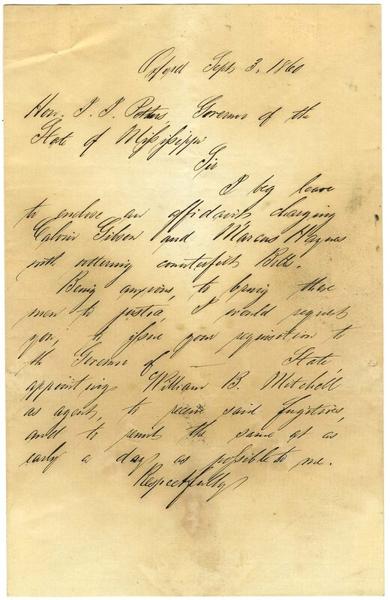 Oxford Sept 3, 1860
Hon. J. J. Pettus, Governor of the
State of Mississippi
Sir
I beg leave
to enclose an affidavit charging
Calvin Gibson and Marcus Haynes
with uttering counterfeit Bill.
Being anxious, to bring these
men to justice, I would request
you, to issue your requisition to
the Governor of — State,
appointing William B. Mitchell
as agent, to receive said fugitives,
and to remit the same at as
early a day as possible to me.
Respectfully